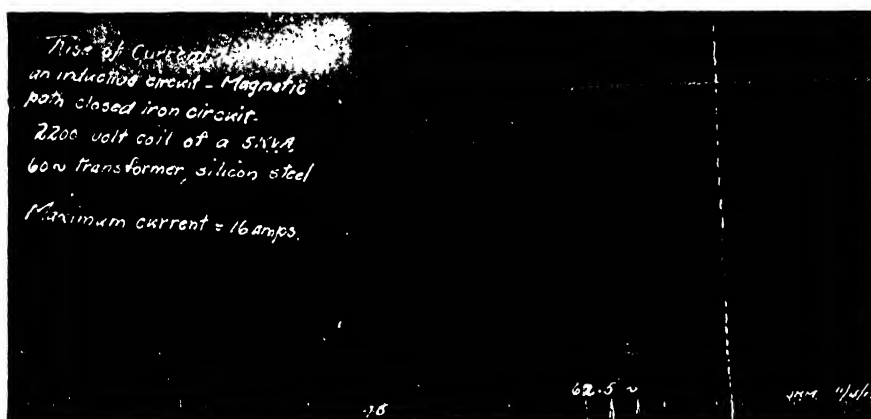 Rise of Current
an inductive circuit - Magnetic
path closed iron circuit.
2200 volt coil of a 5KVA
60~ transformer, silicon steel
Maximum current = 16 amps.
62.5 ~